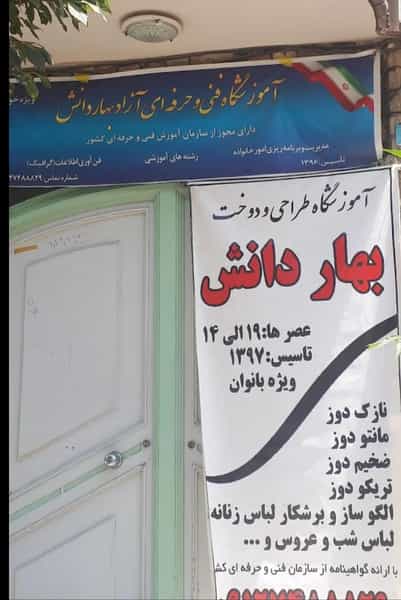 آموزشگاه فنی و حرفه ای آزاد بهار دانش
ویژه
دارای مجوز از سازمان آموزش فنی و حرفه ای کشور
مدیریت و برنامه ریزی امور خانواده
رشته های آموزشی
فن آوری اطلاعات (گرافیک)
تاسیس: ۱۳۹۶
شماره تماس
آموزشگاه طراحی و دوخت
بهار دانش
عصر ها: ۱۹ الی ۱۴
تاسیس: ۱۳۹۷
ویژه بانوان
نازک دوز
مانتو دوز
ضخیم دوز
تریکو دوز
الگو ساز و برشکار لباس زنانه
لباس شب و عروس و ...
با ارائه گواهینامه از سازمان فنی و حرفه ای